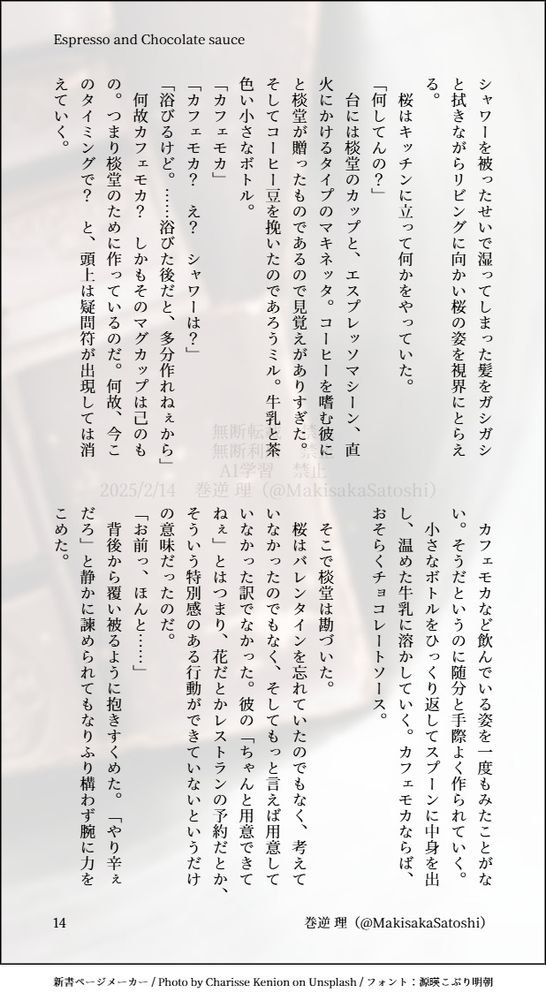 Espresso and Chocolate sauce
シャワーを被ったせいで湿ってしまった髪をガシガシ
と拭きながらリビングに向かい桜の姿を視界にとらえ
る。
　桜はキッチンに立って何かをやっていた。
「何してんの？」
　台には棪堂のカップと、エスプレッソマシーン、直
火にかけるタイプのマキネッタ。コーヒーを嗜む彼に
と棪堂が贈ったものであるので見覚えがありすぎた。
そしてコーヒー豆を挽いたのであろうミル。牛乳と茶
色い小さなボトル。
「カフェモカ」
「カフェモカ？　え？　シャワーは？」
「浴びるけど。……浴びた後だと、多分作れねぇから」
　何故カフェモカ？　しかもそのマグカップは己のも
の。つまり棪堂のために作っているのだ。何故、今こ
のタイミングで？　と、頭上は疑問符が出現しては消
えていく。
　カフェモカなど飲んでいる姿を一度もみたことがな
い。そうだというのに随分と手際よく作られていく。
　小さなボトルをひっくり返してスプーンに中身を出
し、温めた牛乳に溶かしていく。カフェモカならば、
おそらくチョコレートソース。
　そこで棪堂は勘づいた。
　桜はバレンタインを忘れていたのでもなく、考えて
いなかったのでもなく、そしてもっと言えば用意して
いなかった訳でなかった。彼の「ちゃんと用意できて
ねぇ」とはつまり、花だとかレストランの予約だとか、
そういう特別感のある行動ができていないというだけ
の意味だったのだ。
「お前っ、ほんと……」
　背後から覆い被るように抱きすくめた。「やり辛ぇ
だろ」と静かに諫められてもなりふり構わず腕に力を
こめた。
無断転載　禁止
無断利用　禁止
AI学習　禁止
2025/2/14　巻逆 理（@MakisakaSatoshi）
14
巻逆 理（@MakisakaSatoshi）
新書ページメーカー / Photo by Charisse Kenion on Unsplash / フォント：源暎こぶり明朝